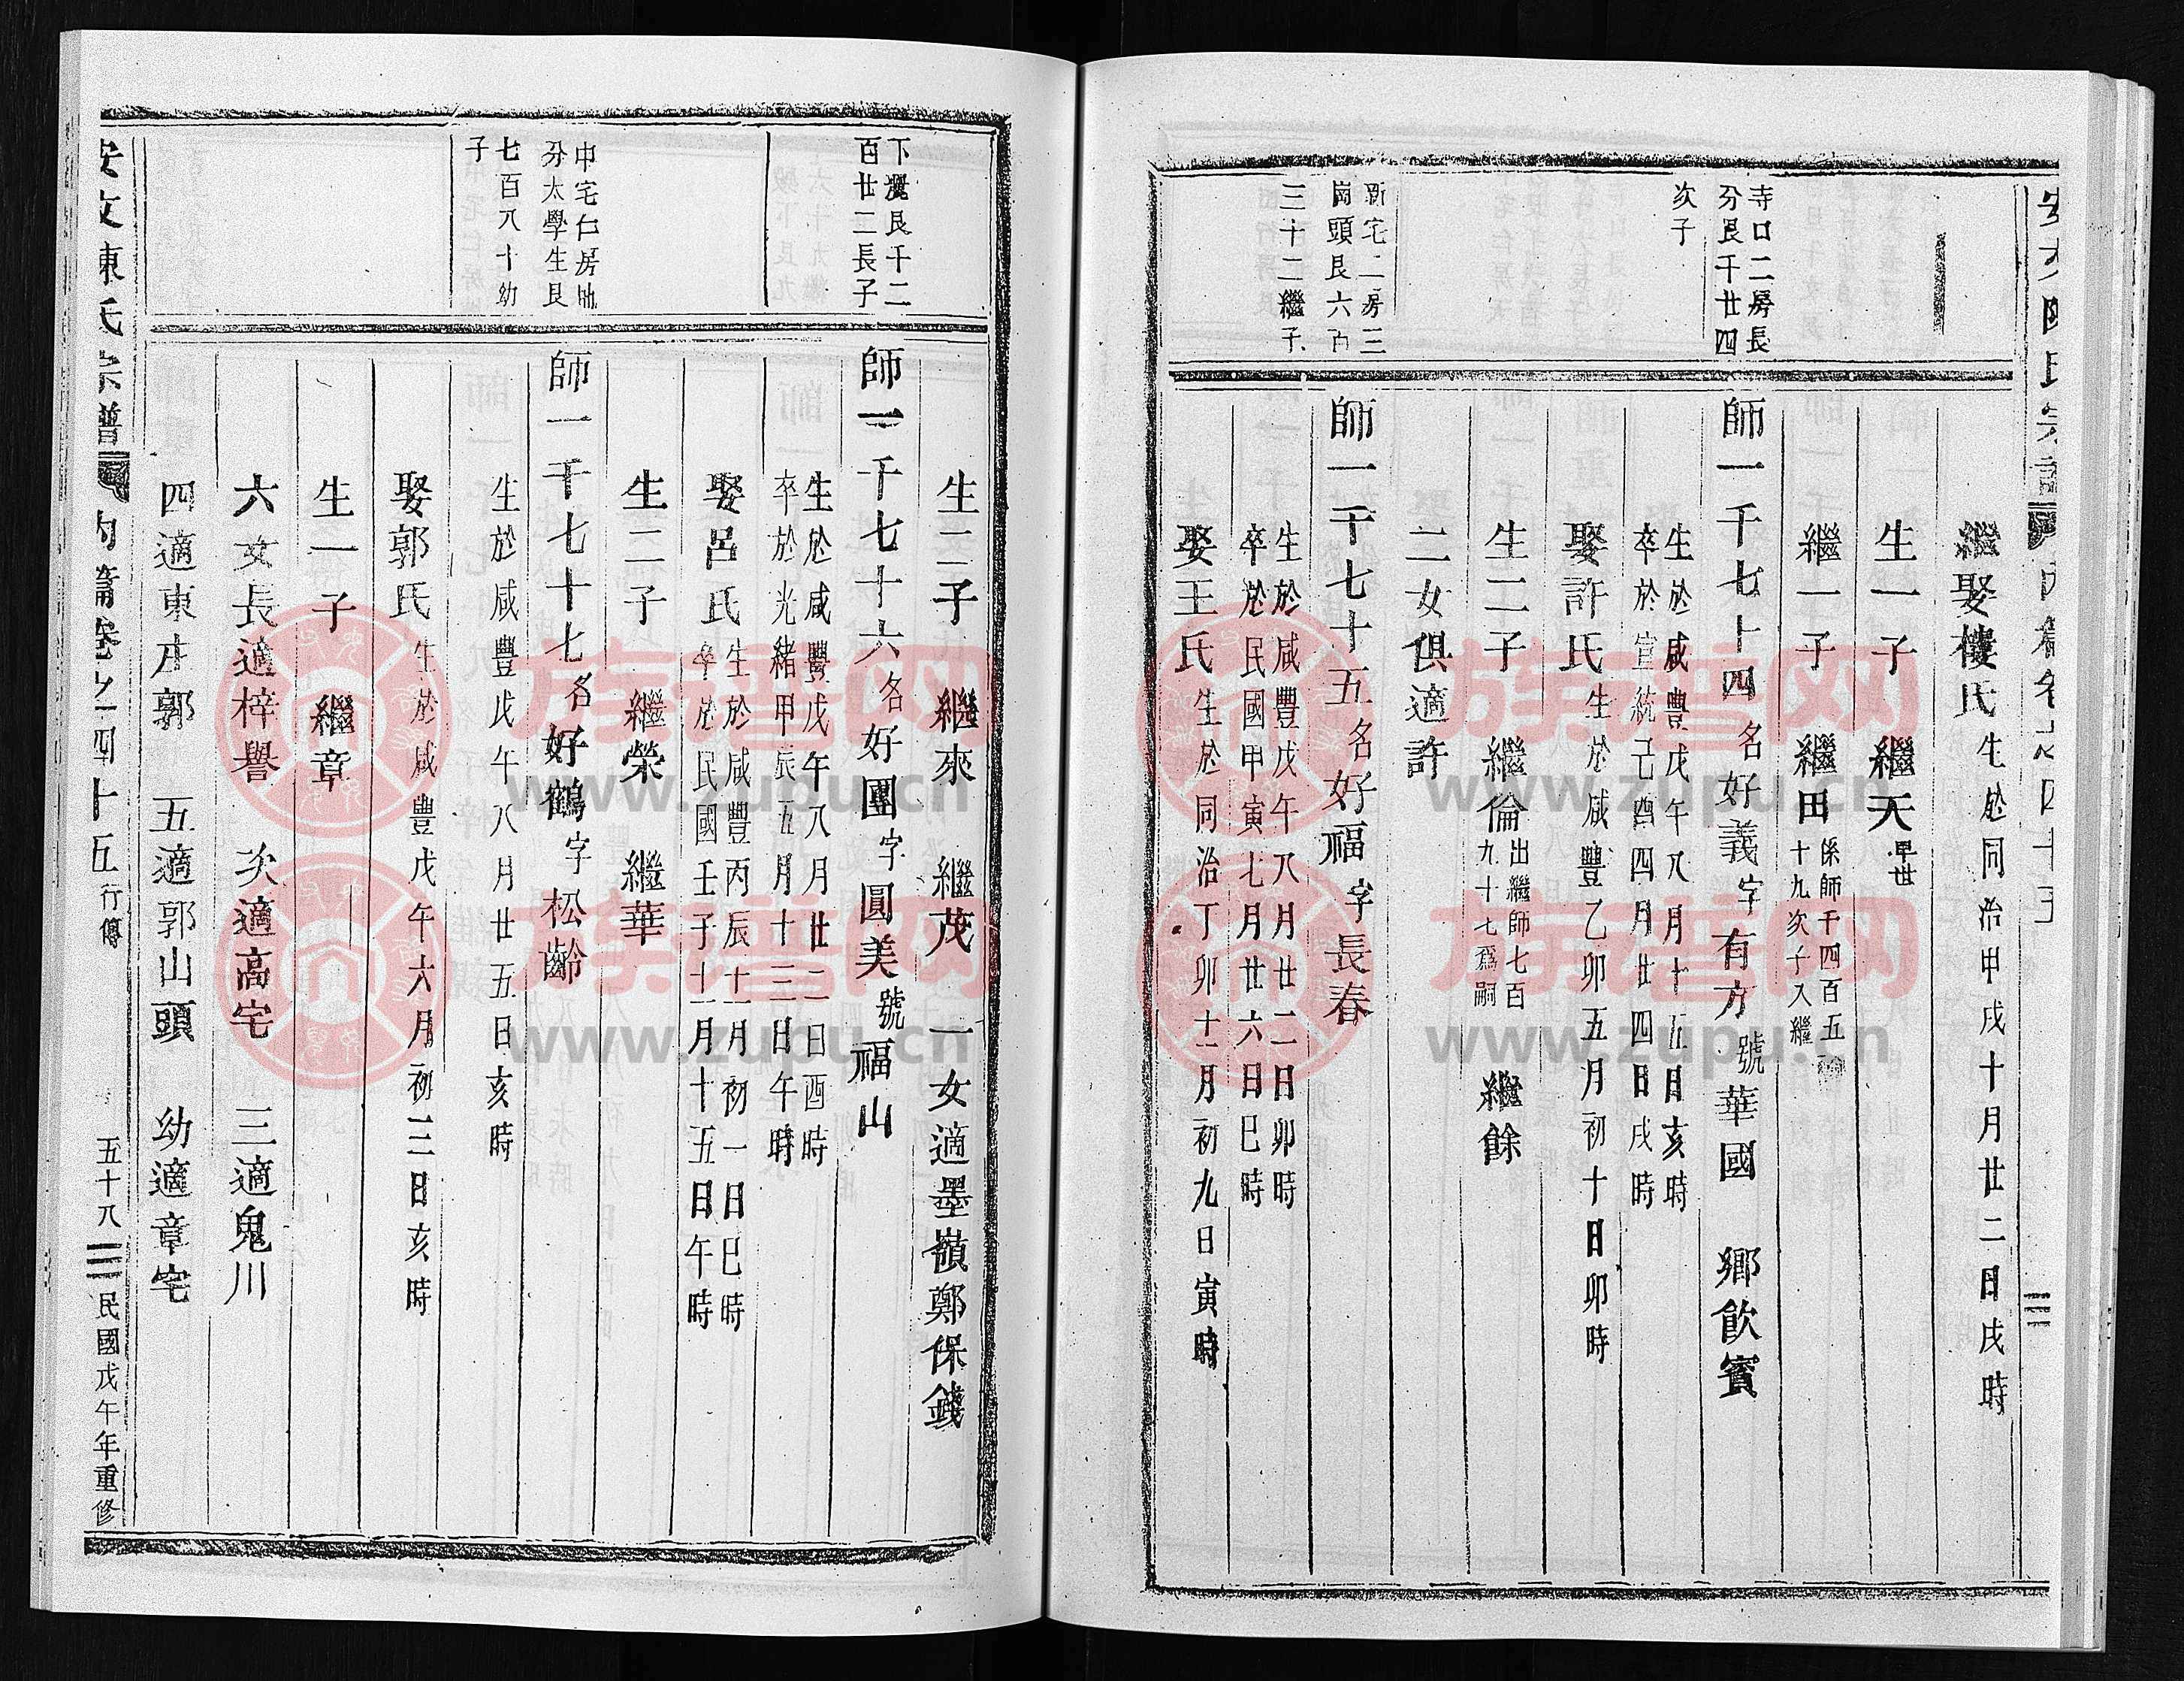 安文陳氏宗譜
內篇卷之四十五
繼娶樓氏生於同治甲戌十月廿二日戌時
生一子 繼天早世
繼一子 繼田係師千四百五十九次子入繼
寺口二房長分良千廿四次子
師一千七十四名好義字有方號華國 鄉飲賓
生於咸豐戊午八月十五日亥時
卒於宣統己酉四月廿四日戌時
娶許氏生於咸豐乙卯五月初十日卯時
生二子 繼倫出繼師七百九十七爲嗣 繼餘
二女俱適許
新宅二房三崗頭良六百三十二繼子
師一千七十五名好福字長春
生於咸豐戊午八月廿二日卯時
卒於民國甲寅七月廿六日巳時
娶王氏生於同治丁卯十一月初九日寅時
生二子 繼來 繼茂 一女適墨嶺鄭保錢
下良千二百廿二長子
師一千七十六名好團字圓美號福山
生於咸豐戊午八月廿二日酉時
卒於光緒甲辰五月十三日午時
娶呂氏生於咸豐丙辰十一月初一日巳時
卒於民國壬子十一月十五日午時
生二子 繼榮 繼華
中宅仁房分太學生良七百八十幼子
師一千七十七名好鶴字松齡
生於咸豐戊午八月廿五日亥時
娶郭氏生於咸豐戊午六月初三日亥時
生一子 繼章
六女長適梓譽 次適高宅 三適鬼川
四適東庄郭 五適郭山頭 幼適章宅
安文陳氏宗譜 內篇卷之四十五 行傳 五十八 民國戊午年重修
族谱网
www.zupu.cn
族谱网
www.zupu.cn
族谱网
www.zupu.cn
族谱网
www.zupu.cn